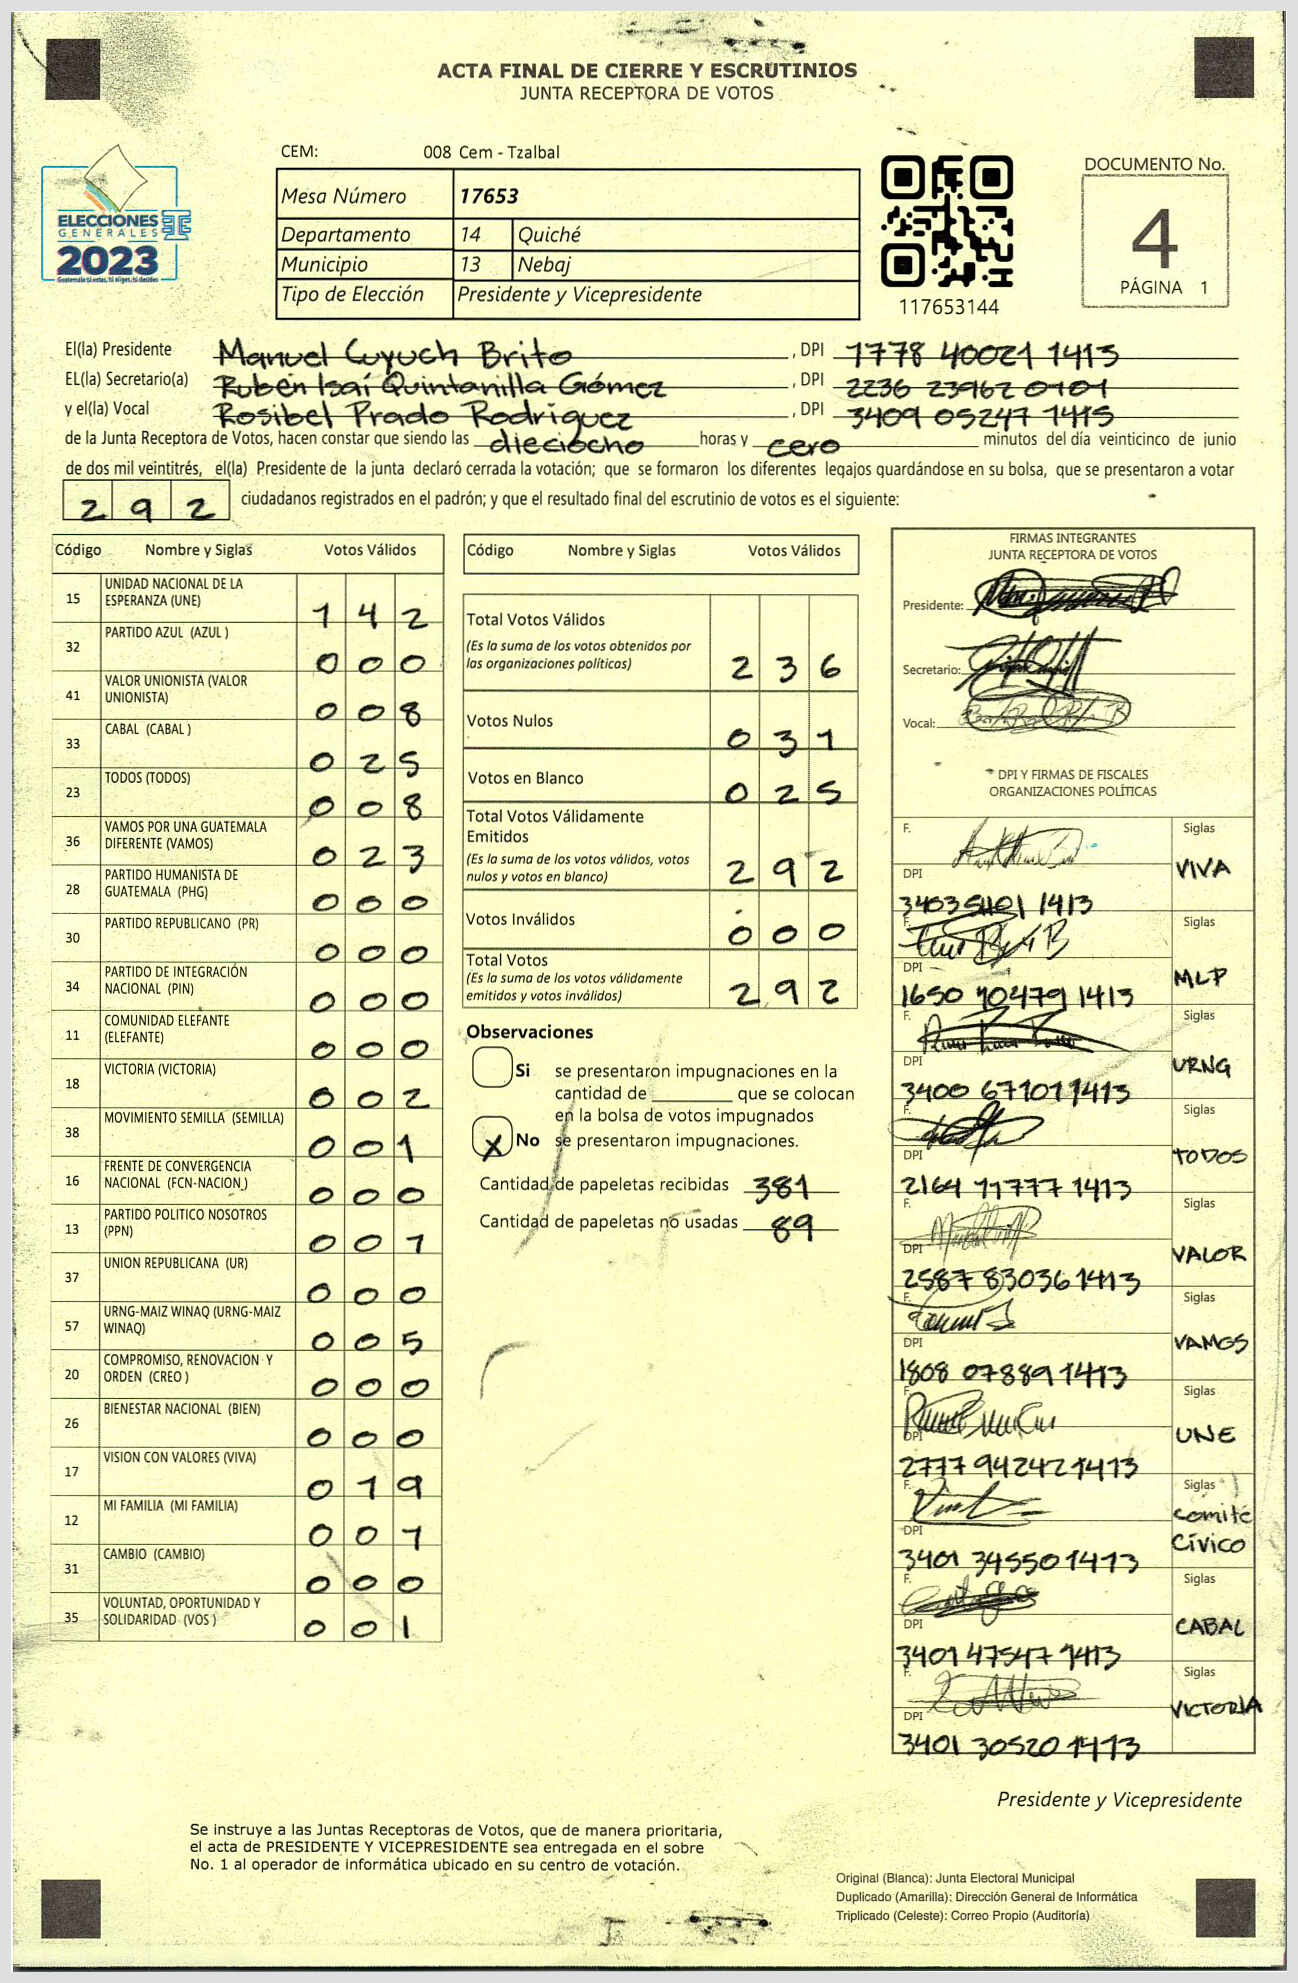 ACTA FINAL DE CIERRE Y ESCRUTINIOS
JUNTA RECEPTORA DE VOTOS
CEM: 008 Cem - Tzalbal
DOCUMENTO No.
4
PÁGINA 1
ELECCIONES
GENERALES
2023
Guatemala tú votas, tú eliges, tú decides
Mesa Número 17653
Departamento 14 Quiché
Municipio 13 Nebaj
Tipo de Elección Presidente y Vicepresidente
117653144
El(la) Presidente Manuel Cuyuch Brito , DPI 1778 40021 1413
EL(la) Secretario(a) Rubén Isaí Quintanilla Gómez , DPI 2236 23962 0101
y el(la) Vocal Rosibel Prado Rodriguez , DPI 3409 05247 1415
de la Junta Receptora de Votos, hacen constar que siendo las dieciocho horas y cero minutos del día veinticinco de junio
de dos mil veintitrés, el(la) Presidente de la junta declaró cerrada la votación; que se formaron los diferentes legajos guardándose en su bolsa, que se presentaron a votar
292 ciudadanos registrados en el padrón; y que el resultado final del escrutinio de votos es el siguiente:
Código Nombre y Siglas Votos Válidos
15 UNIDAD NACIONAL DE LA ESPERANZA (UNE) 142
32 PARTIDO AZUL (AZUL ) 000
41 VALOR UNIONISTA (VALOR UNIONISTA) 008
33 CABAL (CABAL ) 025
23 TODOS (TODOS) 008
36 VAMOS POR UNA GUATEMALA DIFERENTE (VAMOS) 023
28 PARTIDO HUMANISTA DE GUATEMALA (PHG) 000
30 PARTIDO REPUBLICANO (PR) 000
34 PARTIDO DE INTEGRACIÓN NACIONAL (PIN) 000
11 COMUNIDAD ELEFANTE (ELEFANTE) 000
18 VICTORIA (VICTORIA) 002
38 MOVIMIENTO SEMILLA (SEMILLA) 001
16 FRENTE DE CONVERGENCIA NACIONAL (FCN-NACION ) 000
13 PARTIDO POLITICO NOSOTROS (PPN) 001
37 UNION REPUBLICANA (UR) 000
57 URNG-MAIZ WINAQ (URNG-MAIZ WINAQ) 005
20 COMPROMISO, RENOVACION Y ORDEN (CREO ) 000
26 BIENESTAR NACIONAL (BIEN) 000
17 VISION CON VALORES (VIVA) 019
12 MI FAMILIA (MI FAMILIA) 001
31 CAMBIO (CAMBIO) 000
35 VOLUNTAD, OPORTUNIDAD Y SOLIDARIDAD (VOS ) 001
Código Nombre y Siglas Votos Válidos
Total Votos Válidos
(Es la suma de los votos obtenidos por
las organizaciones políticas) 236
Votos Nulos 031
Votos en Blanco 025
Total Votos Válidamente
Emitidos
(Es la suma de los votos válidos, votos
nulos y votos en blanco) 292
Votos Inválidos 000
Total Votos
(Es la suma de los votos válidamente
emitidos y votos inválidos) 292
Observaciones
Si se presentaron impugnaciones en la
cantidad de ________ que se colocan
en la bolsa de votos impugnados
X No se presentaron impugnaciones.
Cantidad de papeletas recibidas 381
Cantidad de papeletas no usadas 89
FIRMAS INTEGRANTES
JUNTA RECEPTORA DE VOTOS
Presidente:
Secretario:
Vocal:
DPI Y FIRMAS DE FISCALES
ORGANIZACIONES POLÍTICAS
F. Siglas
DPI VIVA
1413
F. Siglas
DPI MLP
1650 10479 1413
F. Siglas
DPI URNG
3400 67101 1413
F. Siglas
DPI TODOS
2164 11777 1413
F. Siglas
DPI VALOR
2587 83036 1413
F. Siglas
DPI VAMOS
1808 07889 1413
F. Siglas
DPI UNE
2777 94242 1413
F. Siglas
DPI Comité Cívico
3401 34550 1413
F. Siglas
DPI CABAL
3401 47547 1413
F. Siglas
DPI VICTORIA
3401 30520 1413
Presidente y Vicepresidente
Se instruye a las Juntas Receptoras de Votos, que de manera prioritaria,
el acta de PRESIDENTE Y VICEPRESIDENTE sea entregada en el sobre
No. 1 al operador de informática ubicado en su centro de votación.
Original (Blanca): Junta Electoral Municipal
Duplicado (Amarilla): Dirección General de Informática
Triplicado (Celeste): Correo Propio (Auditoría)